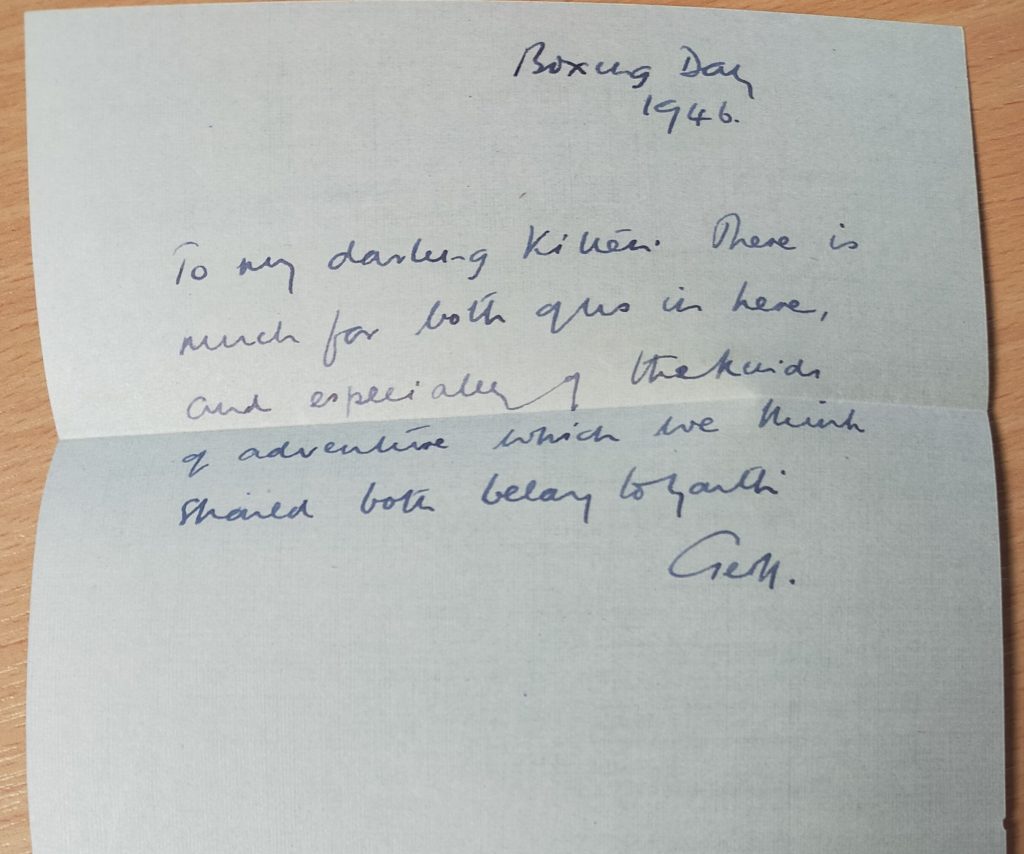 Boxing Day
1946.
To my darling Kitten. There is
much for both of us in here,
and especially of the kinds
of adventure which we think
should both belong to Garth
Geoff.